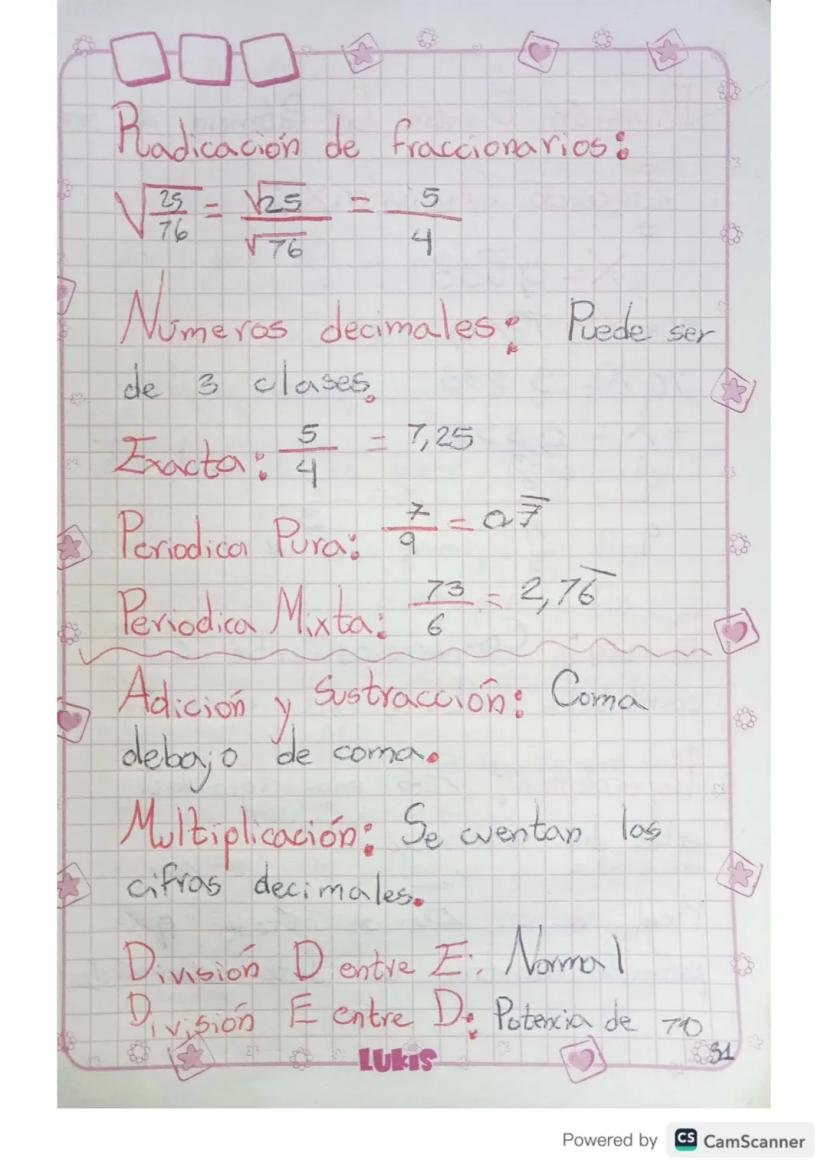 Radicación de fraccionarios:
√25/16 = √25/√16 = 5/4
Números decimales: Puede ser
de 3 clases.
Exacta: 5/4 = 1,25
Periodica Pura: 7/9 = 0 7̅
Periodica Mixta: 13/6 = 2,16̅
Adición y Sustracción: Coma
debajo de coma.
Multiplicación: Se cuentan las
cifras decimales.
División D entre E: Normal
División E entre D: Potencia de 10
31
LUKIS
Powered by CS CamScanner